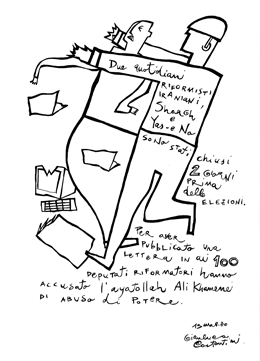 Due quotidiani
RIFORMISTI
IRANIANI,
Shargh
e
Yas-e No
sono stati
chiusi
2 GIORNI
PRIMA
delle
ELEZIONI.
PER aver
Pubblicato una
LETTERA IN cui 100
DEPUTATI RIFORMATORI hanno
ACCUSATO l'ayatollah Ali Khamenei
DI ABUSO di POTERE.
Gianluca
Costantini